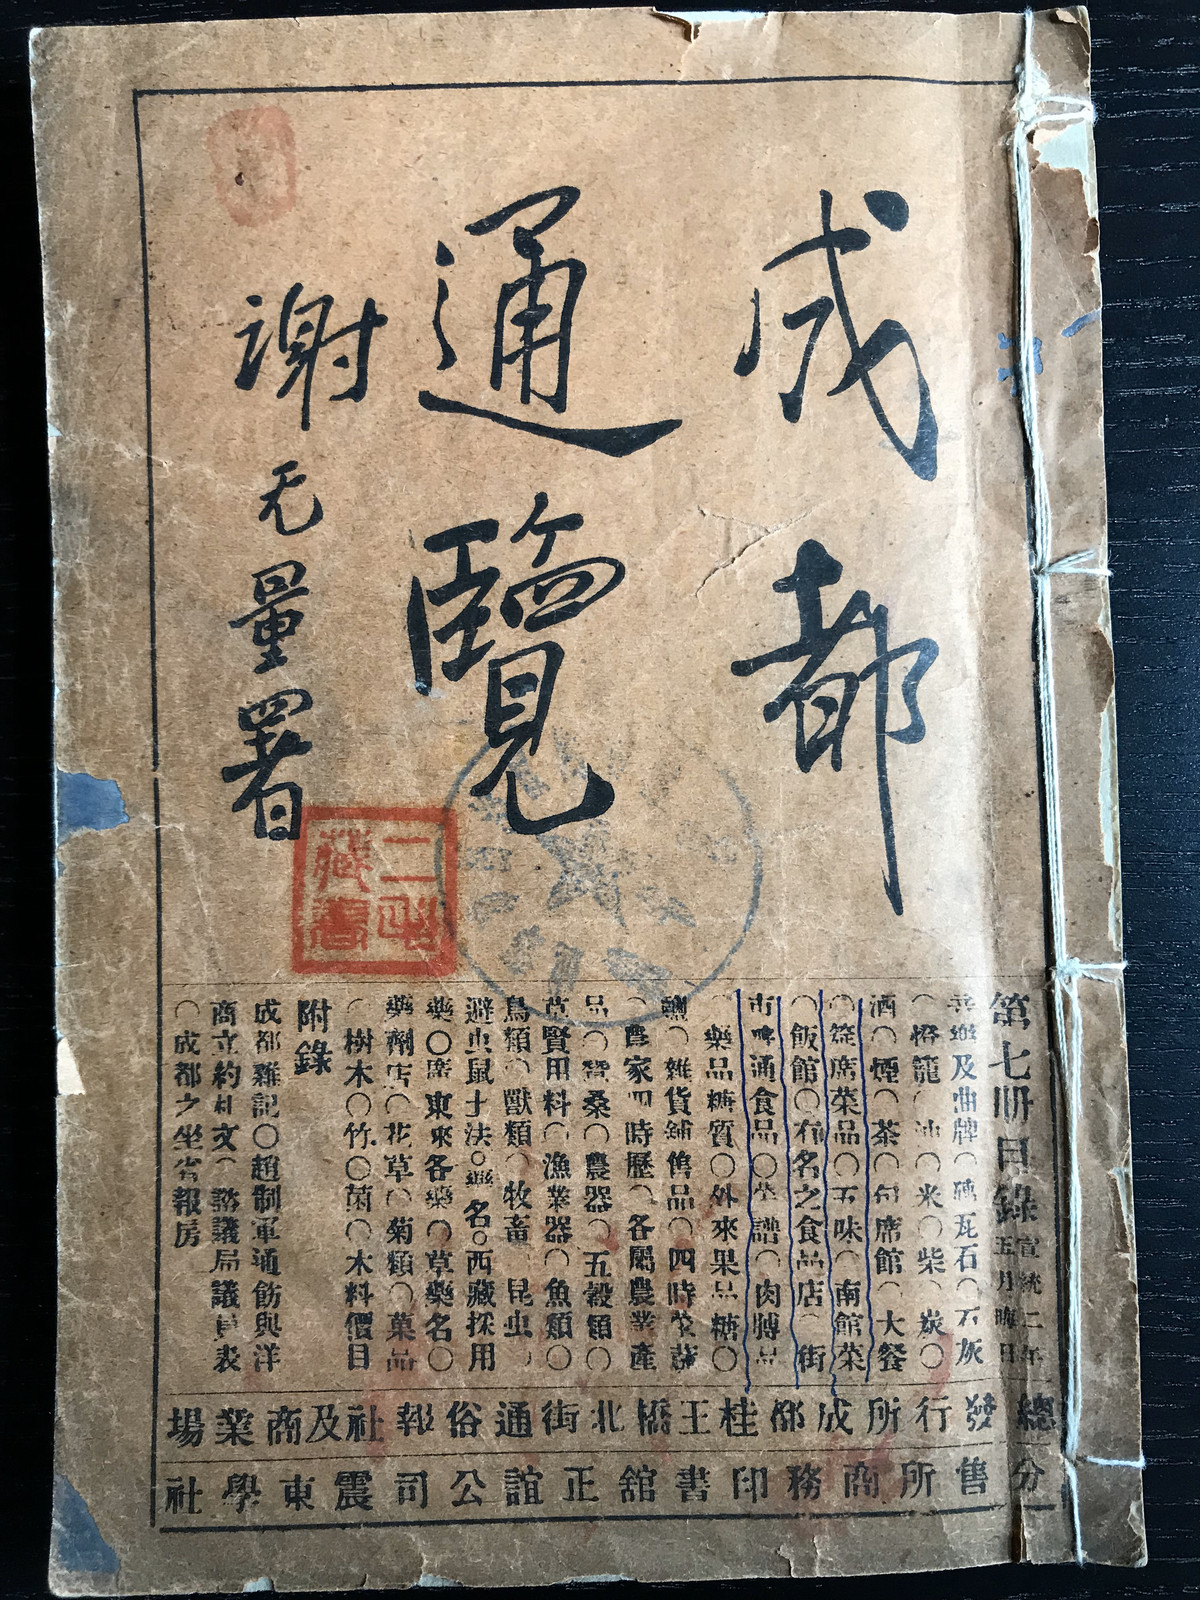 成都
通覽
謝无量署
二酉
藏書
第七冊目錄 宣統二年五月晦日
及曲牌○磚瓦石○石灰
燈籠○油○米○柴○炭○
酒○煙○茶○包席館○大餐
○筵席菜品○五味○南館菜
○飯館○有名之食品店○街
市普通食品○菜譜○肉脯品
藥品糖質○外來果品糖○
鹽○雜貨鋪售品○四時菜蔬
○農家四時歷○各屬農業產
品○蠶桑○農器○五穀類○
草賢用料○漁業器○魚類○
鳥類○獸類○牧畜○昆虫○
避虫鼠土法○藥名○西藏採用
藥○廣東來各藥○草藥名○
藥劑店○花草○菊類○菓品
○樹木○竹○菌○木料價目
附錄
成都雜記○趙制軍通飭與洋
商立約札文○諮議局議員表
○成都之坐省報房
總發行所成都桂王橋北街通俗報社及商業場
分售所商務印書舘正誼公司震東學社